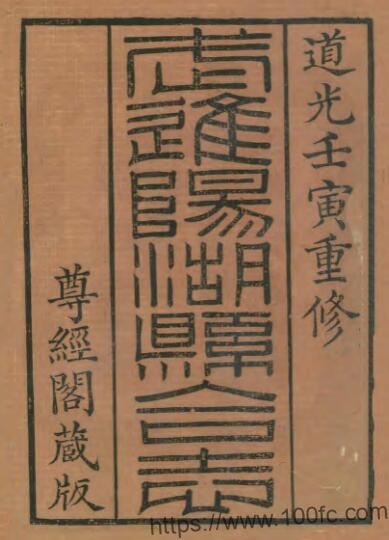 道光壬寅重修
武進陽湖縣合志
尊經閣藏版
https://www.100fc.com